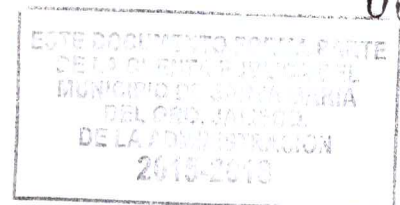 ESTE DOCUMENTO FORMA PARTE
DE LA CUENTA PUBLICA DEL
MUNICIPIO DE MARIA
DEL ORO, JALISCO.
DE LA ADMINISTRACION
2015-2018